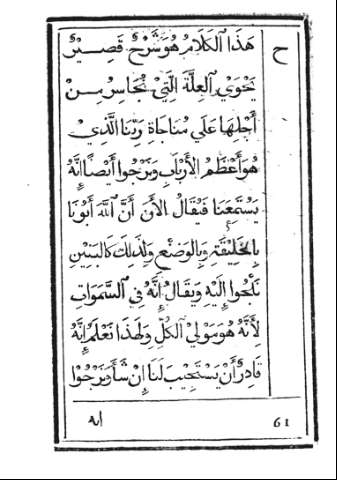 ح هَذَا ٱلكَلَامُ هُوَ شَرْحٌ قَصِيْرٌ
يَحْوِيْ ٱلعِلَّةَ الَّتِيْ نَتَجَاسِرُ مِنْ
أَجْلِهَا عَلَي مُنَاجَاةِ رَبِّنَا الَّذِيْ
هُوَ أَعْظَمُ الأَرْبَابِ وَنَرْجُوا أَيْضًا إِنَّهُ
يَسْتَمِعَنَا فَيُقَالُ الأَنَ أَنَّ ٱللَّهَ أَبُونَا
بِالخَلِيْقَةِ وَبِالوَضْعِ وَلِذَلِكَ كَالبَنِيْنِ
نَلْجُوا إِلَيْهِ وَيُقَالُ إِنَّهُ فِي ٱلسَّمَوَاتِ
لِأَنَّهُ هُوَ مَوْلَي ٱلكُلِّ وَلِهَذَا نَعْلَمُ إِنَّهُ
قَادِرٌ أَنْ يَسْتَجِيْبَ لَنَا إِنْ شَأَ وَنَرْجُوْا
61